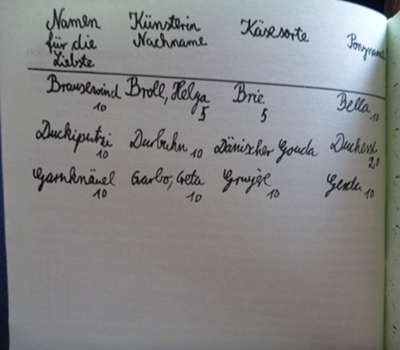 Namen für die Liebste Künsterin Nachname Käsesorte Ponyname
Brausewind 10 Broll, Helga 5 Brie 5 Bella 10
Duckiputzi 10 Durbuhn 10 Dänischer Gouda Duchesse 20
Garnknäuel 10 Garbo, Greta 10 Grujèje 10 Gerda 10